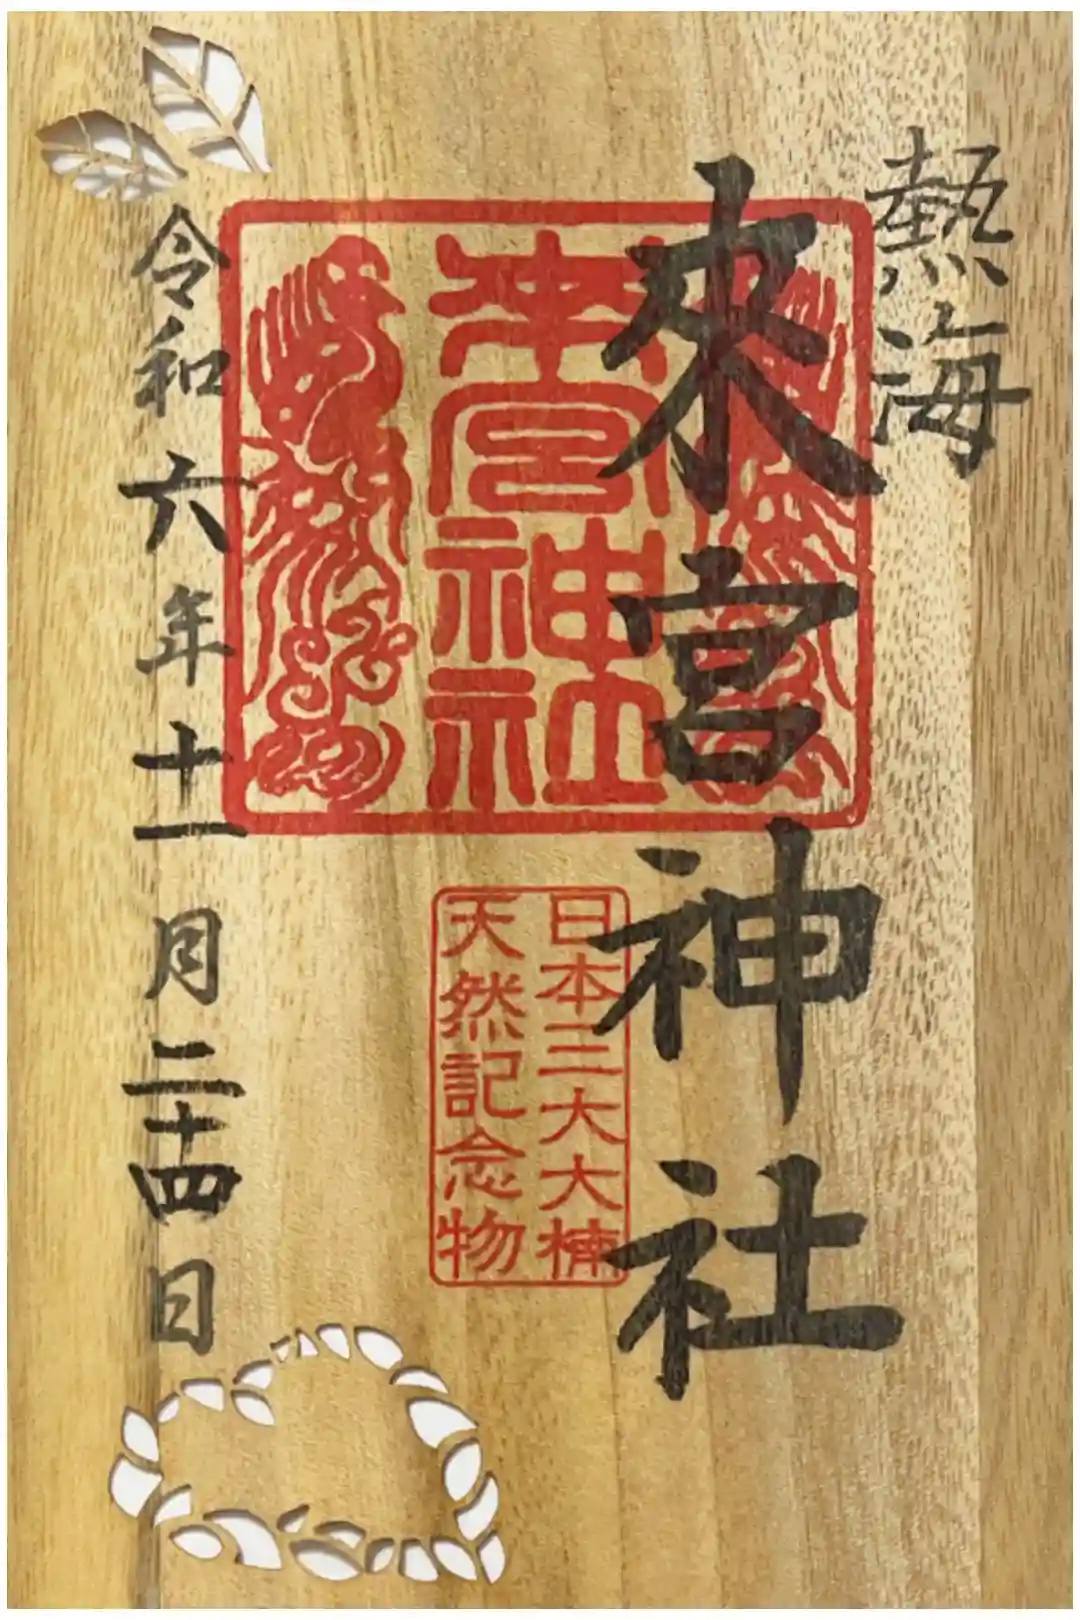 熱海
來宮神社
來宮
神社
日本三大大楠
天然記念物
令和六年十一月二十四日